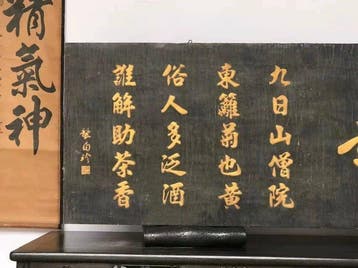 九日山僧院
東籬菊也黄
俗人多泛酒
誰解助茶香
精氣神